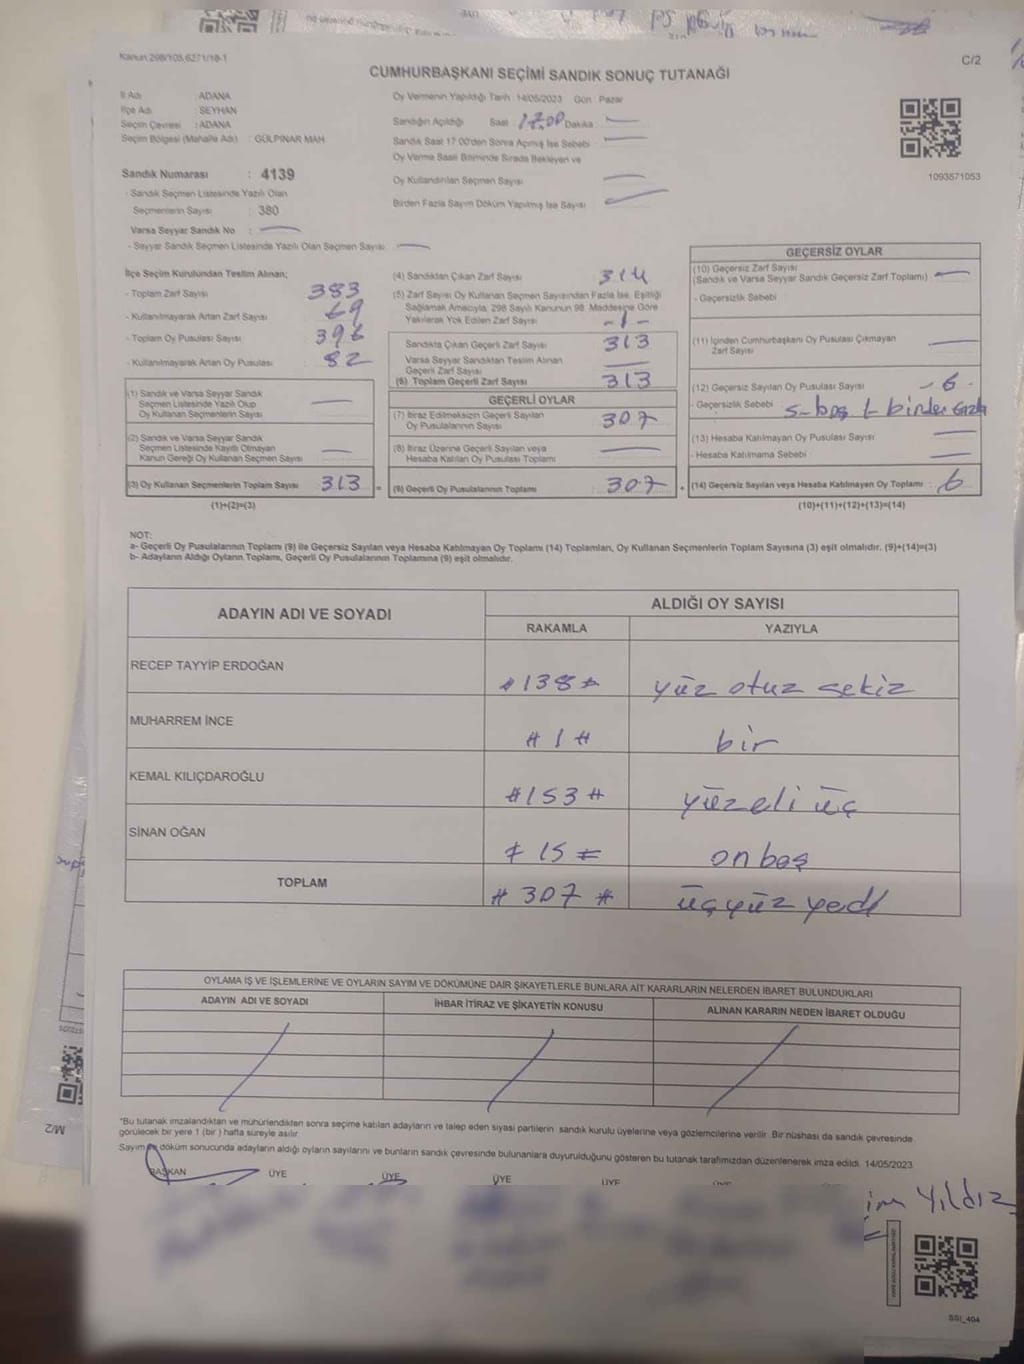 Kanun 298/103,6271/18-1
C/2
CUMHURBAŞKANI SEÇİMİ SANDIK SONUÇ TUTANAĞI
İl Adı : ADANA
İlçe Adı : SEYHAN
Seçim Çevresi : ADANA
Seçim Bölgesi (Mahalle Adı) : GÜLPINAR MAH
Oy Vermenin Yapıldığı Tarih :14/05/2023 Gün : Pazar
Sandığın Açıldığı Saat : 17.00 Dakika :
Sandık Saat 17:00'den Sonra Açımış İse Sebebi :
Oy Verme Saati Bitiminde Sırada Bekleyen ve
Oy Kullandırılan Seçmen Sayısı :
Birden Fazla Sayım Döküm Yapılmış İse Sayısı :
1093571053
Sandık Numarası : 4139
- Sandık Seçmen Listesinde Yazılı Olan
Seçmenlerin Sayısı : 380
Varsa Seyyar Sandık No :
- Seyyar Sandık Seçmen Listesinde Yazılı Olan Seçmen Sayısı :
İlçe Seçim Kurulundan Teslim Alınan;
- Toplam Zarf Sayısı : 383
- Kullanılmayarak Artan Zarf Sayısı : 69
- Toplam Oy Pusulası Sayısı : 396
- Kullanılmayarak Artan Oy Pusulası : 82
(1) Sandık ve Varsa Seyyar Sandık
Seçmen Listesinde Yazılı Olup
Oy Kullanan Seçmenlerin Sayısı :
(2) Sandık ve Varsa Seyyar Sandık
Seçmen Listesinde Kayıtlı Olmayan
Kanun Gereği Oy Kullanan Seçmen Sayısı :
(3) Oy Kullanan Seçmenlerin Toplam Sayısı : 313 =
(1)+(2)=(3)
(4) Sandıktan Çıkan Zarf Sayısı : 314
(5) Zarf Sayısı Oy Kullanan Seçmen Sayısından Fazla İse, Eşitliği
Sağlamak Amacıyla, 298 Sayılı Kanunun 98. Maddesine Göre
Yakılarak Yok Edilen Zarf Sayısı : -1-
Sandıkta Çıkan Geçerli Zarf Sayısı : 313
Varsa Seyyar Sandıktan Teslim Alınan
Geçerli Zarf Sayısı
(6) Toplam Geçerli Zarf Sayısı : 313
GEÇERLİ OYLAR
(7) İtiraz Edilmeksizin Geçerli Sayılan
Oy Pusulalarının Sayısı : 307
(8) İtiraz Üzerine Geçerli Sayılan veya
Hesaba Katılan Oy Pusulası Toplamı :
(9) Geçerli Oy Pusulalarının Toplamı : 307 +
GEÇERSİZ OYLAR
(10) Geçersiz Zarf Sayısı
(Sandık ve Varsa Seyyar Sandık Geçersiz Zarf Toplamı) :
- Geçersizlik Sebebi :
(11) İçinden Cumhurbaşkanı Oy Pusulası Çıkmayan
Zarf Sayısı
(12) Geçersiz Sayılan Oy Pusulası Sayısı : -6-
- Geçersizlik Sebebi : 5-boş 1-birden
(13) Hesaba Katılmayan Oy Pusulası Sayısı :
- Hesaba Katılmama Sebebi :
(14) Geçersiz Sayılan veya Hesaba Katılmayan Oy Toplamı : 6
(10)+(11)+(12)+(13)=(14)
NOT:
a- Geçerli Oy Pusulalarının Toplamı (9) ile Geçersiz Sayılan veya Hesaba Katılmayan Oy Toplamı (14) Toplamları, Oy Kullanan Seçmenlerin Toplam Sayısına (3) eşit olmalıdır. (9)+(14)=(3)
b- Adayların Aldığı Oyların Toplamı, Geçerli Oy Pusulalarının Toplamına (9) eşit olmalıdır.
ADAYIN ADI VE SOYADI
ALDIĞI OY SAYISI
RAKAMLA YAZIYLA
RECEP TAYYİP ERDOĞAN #138# yüz otuz sekiz
MUHARREM İNCE #1# bir
KEMAL KILIÇDAROĞLU #153# yüzelli üç
SİNAN OĞAN #15# onbeş
TOPLAM #307# üçyüz yedi
OYLAMA İŞ VE İŞLEMLERİNE VE OYLARIN SAYIM VE DÖKÜMÜNE DAİR ŞİKAYETLERLE BUNLARA AİT KARARLARIN NELERDEN İBARET BULUNDUKLARI
ADAYIN ADI VE SOYADI İHBAR İTİRAZ VE ŞİKAYETİN KONUSU ALINAN KARARIN NEDEN İBARET OLDUĞU
*Bu tutanak imzalandıktan ve mühürlendikten sonra seçime katılan adayların ve talep eden siyasi partilerin sandık kurulu üyelerine veya gözlemcilerine verilir. Bir nüshası da sandık çevresinde
görülecek bir yere 1 (bir) hafta süreyle asılır.
Sayım ve döküm sonucunda adayların aldığı oyların sayılarını ve bunların sandık çevresinde bulunanlara duyurulduğunu gösteren bu tutanak tarafımızdan düzenlenerek imza edildi. 14/05/2023
BAŞKAN ÜYE ÜYE ÜYE ÜYE
Yıldız
SSI_404
M/2